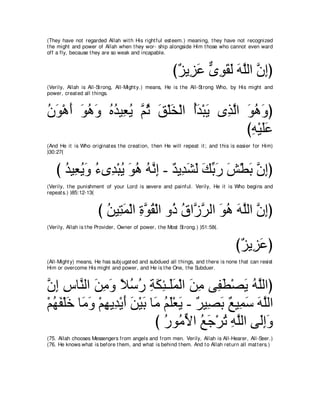 (They have not regarded Allah with His rightful esteem.) meaning, they have not recognized
the might and power of Allah when they wor- ship alongside Him those who cannot even ward
off a fly, because they are so weak and incapable.
(إِنَّ اللَّهَ لَقَوِىٌّ عَزِيزٌ)
(Verily, Allah is All-Strong, All-Mighty.) means, He is the All-Strong Who, by His might and
power, created all things.
(وَهُوَ الَّذِى يَبْدَأُ الْخَلْقَ ثُمَّ يُعِيدُهُ وَهُوَ أَهْوَنُ
عَلَيْهِ)
(And He it is Who originates the creation, then He will repeat it; and this is easier for Him)
[30:27]
(إِنَّ بَطْشَ رَبِّكَ لَشَدِيدٌ - إِنَّهُ هُوَ يُبْدِىءُ وَيُعِيدُ )
(Verily, the punishment of your Lord is severe and painful. Verily, He it is Who begins and
repeats.) [85:12-13]
(إِنَّ اللَّهَ هُوَ الرَّزَّاقُ ذُو الْقُوَّةِ الْمَتِينُ )
(Verily, Allah is the Provider, Owner of power, the Most Strong.) [51:58].
(عَزِيزٌ)
(All-Mighty) means, He has subjugated and subdued all things, and there is none that can resist
Him or overcome His might and power, and He is the One, the Subduer.
(اللَّهُ يَصْطَفِى مِنَ الْمَلَـئِكَةِ رُسُلاً وَمِنَ النَّاسِ إِنَّ
اللَّهَ سَمِيعٌ بَصِيرٌ - يَعْلَمُ مَا بَيْنَ أَيْدِيهِمْ وَمَا خَلْفَهُمْ
وَإِلَى اللَّهِ تُرْجَعُ الاٍّمُورُ )
(75. Allah chooses Messengers from angels and from men. Verily, Allah is All-Hearer, All-Seer.)
(76. He knows what is before them, and what is behind them. And to Allah return all matters.)